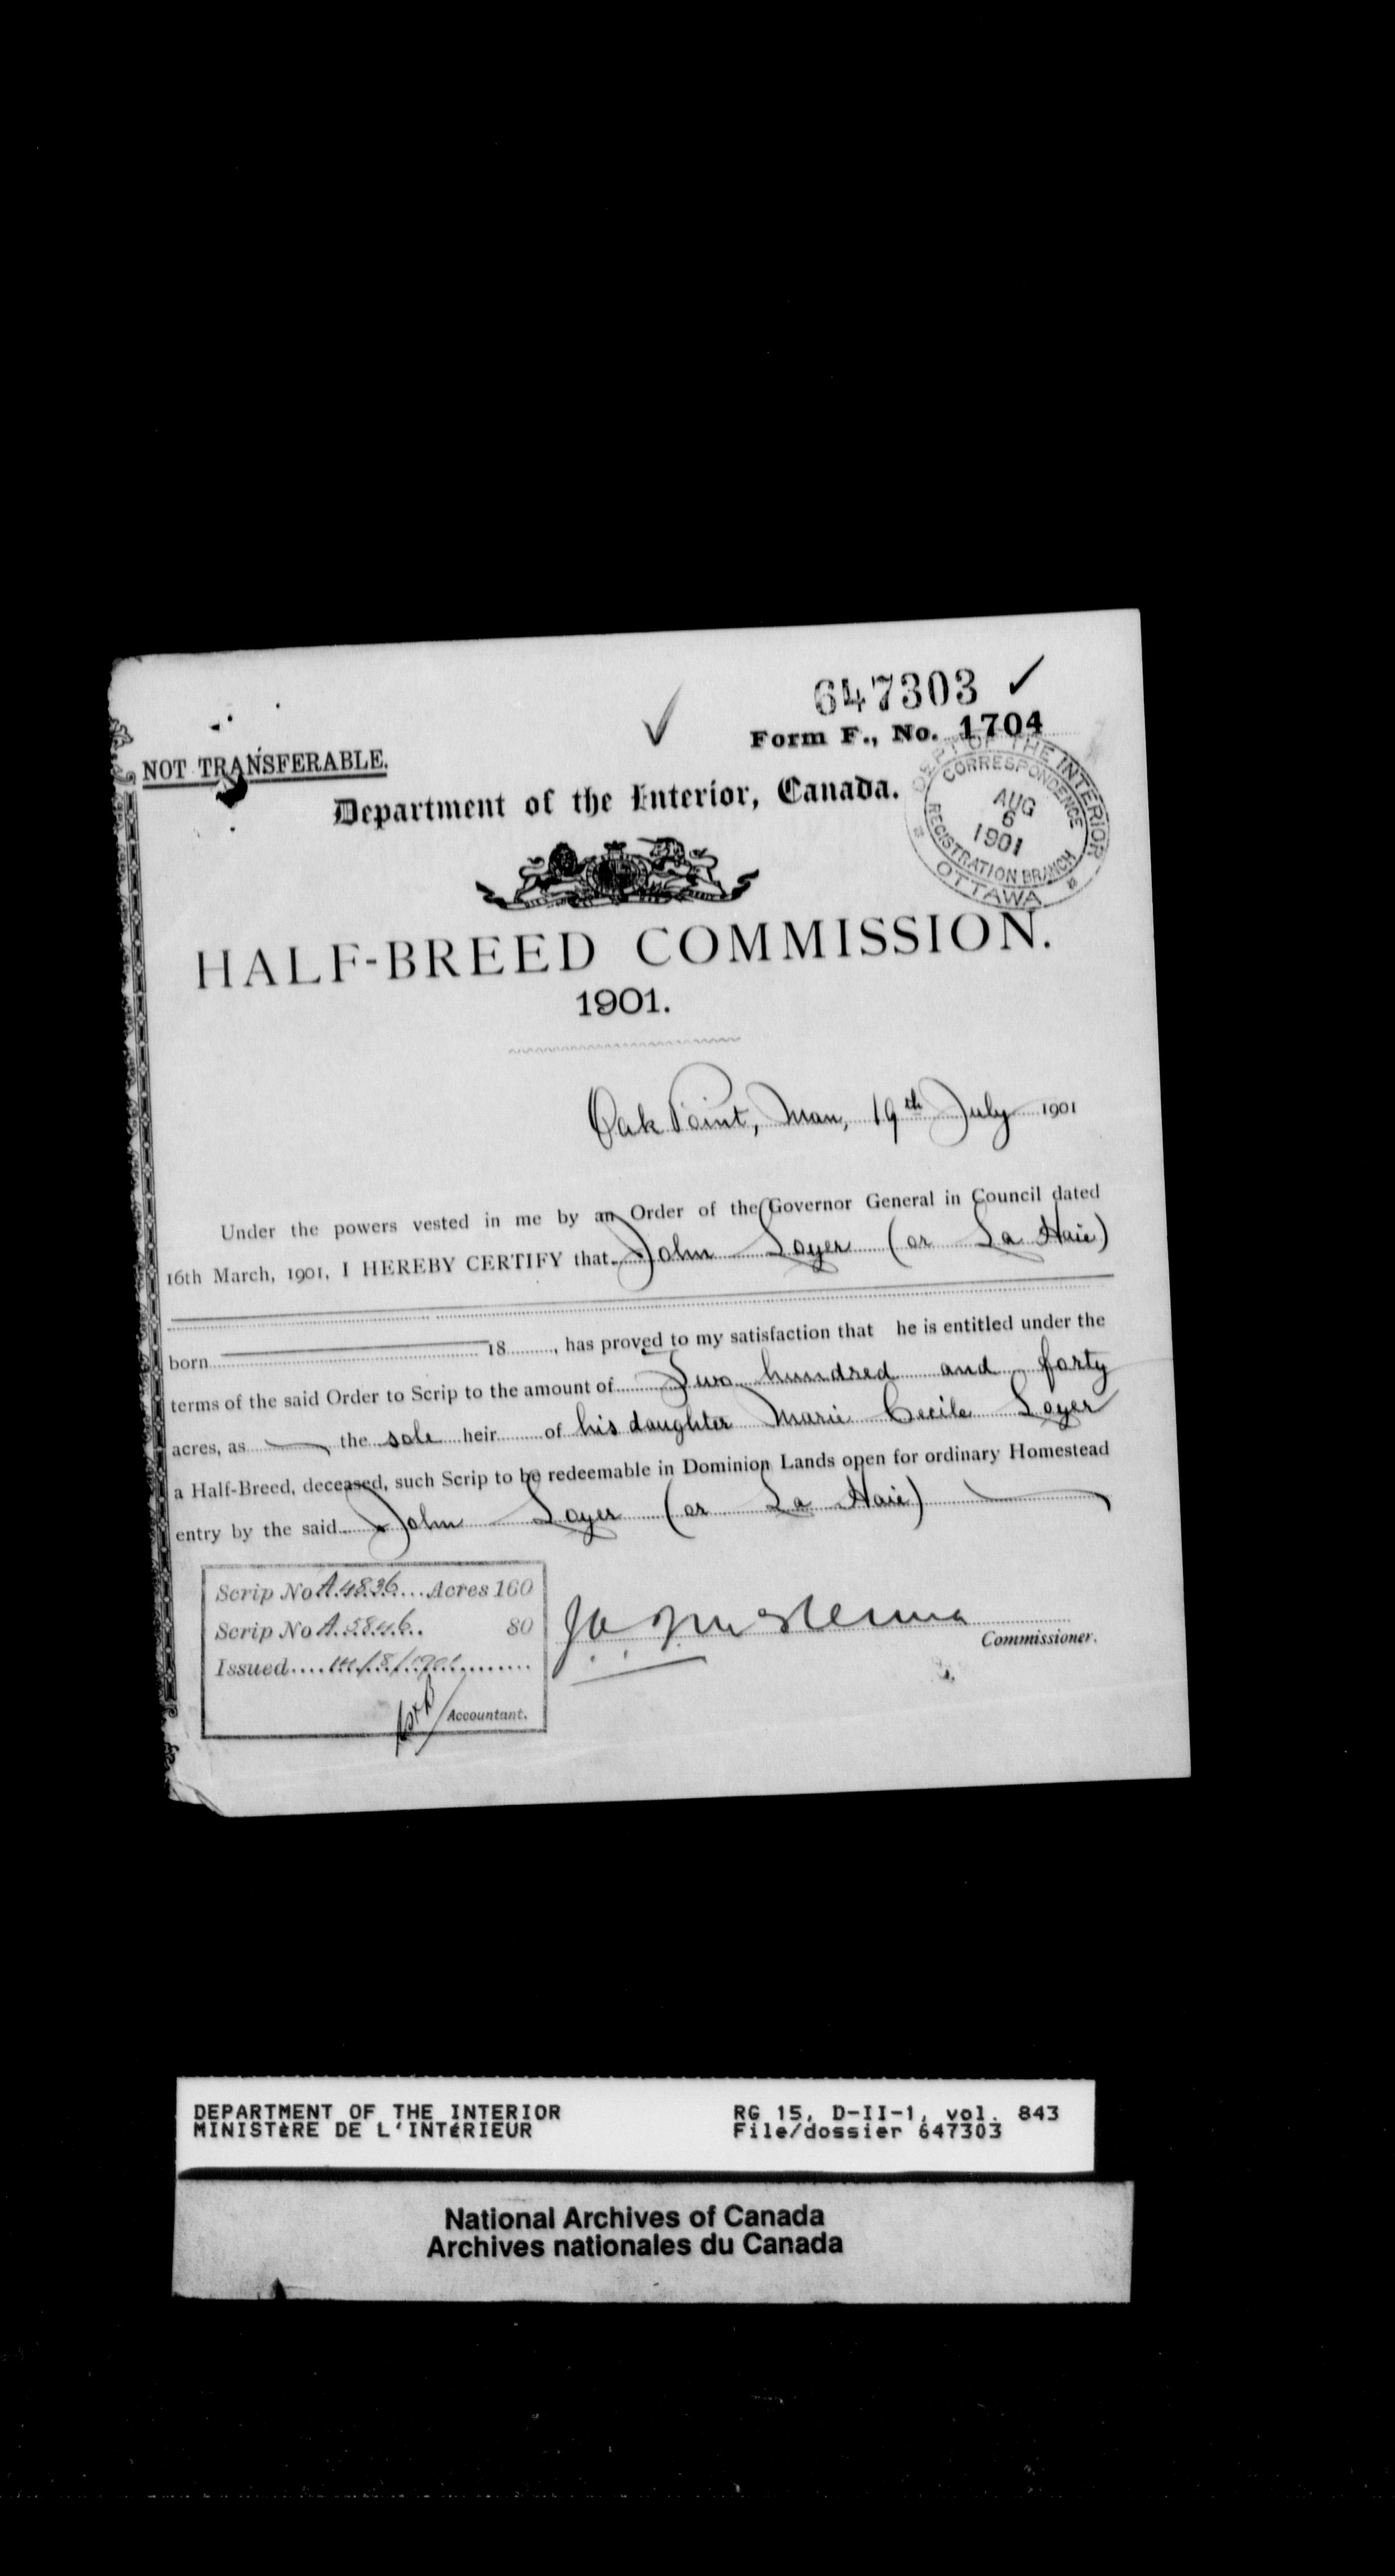 647303 ✓
✓
Form F., No. 1704
NOT TRANSFERABLE.
Department of the Interior, Canada.
DEP'T OF THE INTERIOR
CORRESPONDENCE
AUG
6
1901
REGISTRATION BRANCH
OTTAWA
HALF-BREED COMMISSION.
1901.
Oak Point, Man, 19th July 1901
Under the powers vested in me by an Order of the Governor General in Council dated
16th March, 1901, I HEREBY CERTIFY that John Loyer (or La Haie)
born 18, has proved to my satisfaction that he is entitled under the
terms of the said Order to Scrip to the amount of Two hundred and forty
acres, as the sole heir of his daughter Marie Cecile Loyer
a Half-Breed, deceased, such Scrip to be redeemable in Dominion Lands open for ordinary Homestead
entry by the said John Loyer (or La Haie)
Scrip No A.4836... Acres 160
Scrip No A.5846.. 80
Issued.... 14/8/1901
Accountant.
Commissioner.
DEPARTMENT OF THE INTERIOR
MINISTèRE DE L'INTéRIEUR
RG 15, D-II-1, vol. 843
File/dossier 647303
National Archives of Canada
Archives nationales du Canada